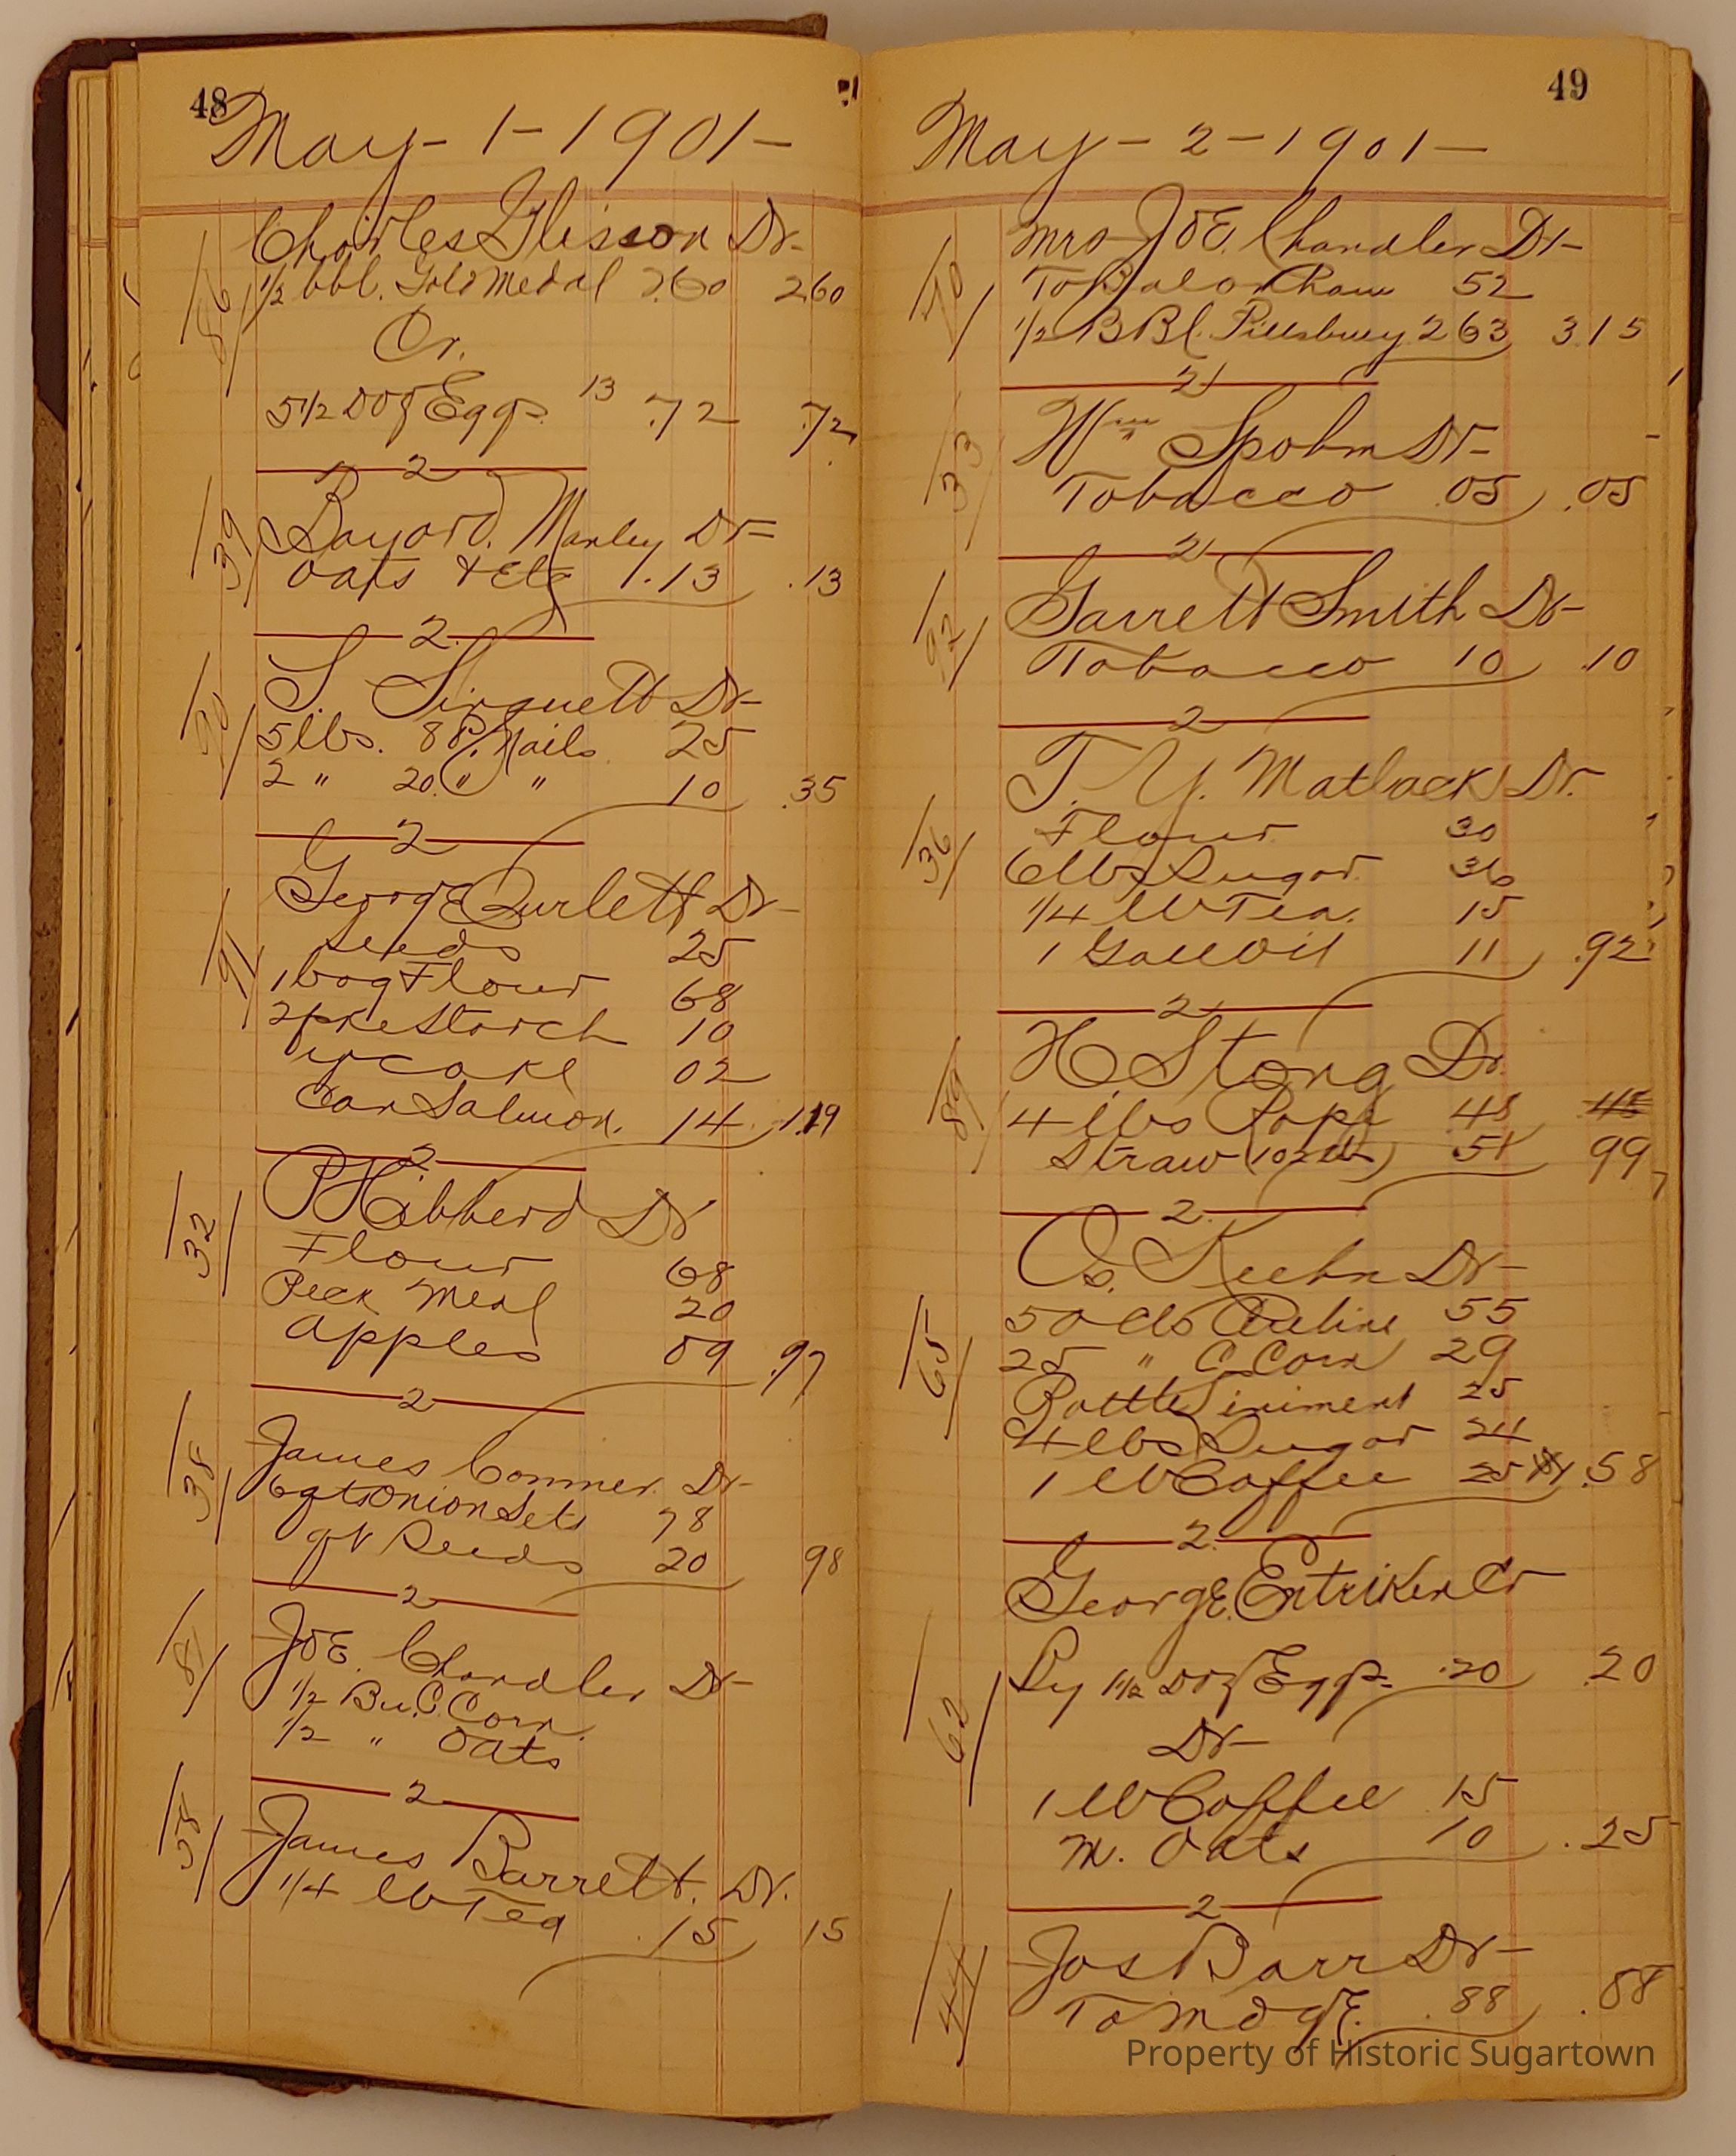 48
May - 1 - 1901 -
Charles Glisson Dr -
86
1/2 bbl. Gold Medal 2.60 2.60
Cr.
5 1/2 Doz Eggs 13 .72 .72
2
39
Bayard Manley Dr -
Oats & Etc 1.13 .13
2
90
S. Dr -
5 lbs. 8 P. Nails 25
2 " 20 " " 10 .35
2
George Burlett Dr -
91
Seeds 25
1 bag Flour 68
2 pks Starch 10
cake 02
Can Salmon. 14 1.19
2
32
P Hibberd Dr
Flour 68
Peck Meal 20
Apples 09 .97
2
38
James Conner Dr -
6 qts Onion Sets 78
qt Seeds 20 98
2
81
Joe. Chandler Dr -
1/2 Bu. C. Corn
1/2 " Oats
2
58
James Barrett. Dr.
1/4 lb Tea .15 15
49
May - 2 - 1901 -
70
Mrs Joe. Chandler Dr -
To Bal on 52
1/2 BBl. Pillsbury 2 63 3.15
2
33
Wm Spohn Dr -
Tobacco .05 .05
2
92
Garrett Smith Dr -
Tobacco 10 .10
2
T. Y. Matlack Dr.
36
Flour 30
6 lbs Sugar 36
1/4 lb Tea. 15
1 Gall Oil 11 .92
2
H. Stong Dr.
89
4 lbs Rope 48 48
Straw (102 lbs) 51 99
2
O. Keehn Dr -
65
50 lbs 55
25 " C. Corn 29
Bottle Liniment 25
4 lbs Sugar 24
1 lb Coffee 25 1.58
2
George. Entriken Cr
62
By 1 1/2 Doz Eggs .20 .20
Dr -
1 lb Coffee 15
M. Oats 10 .25
2
44
Jos Barr Dr -
To Mdse. .88 .88
Property of Historic Sugartown